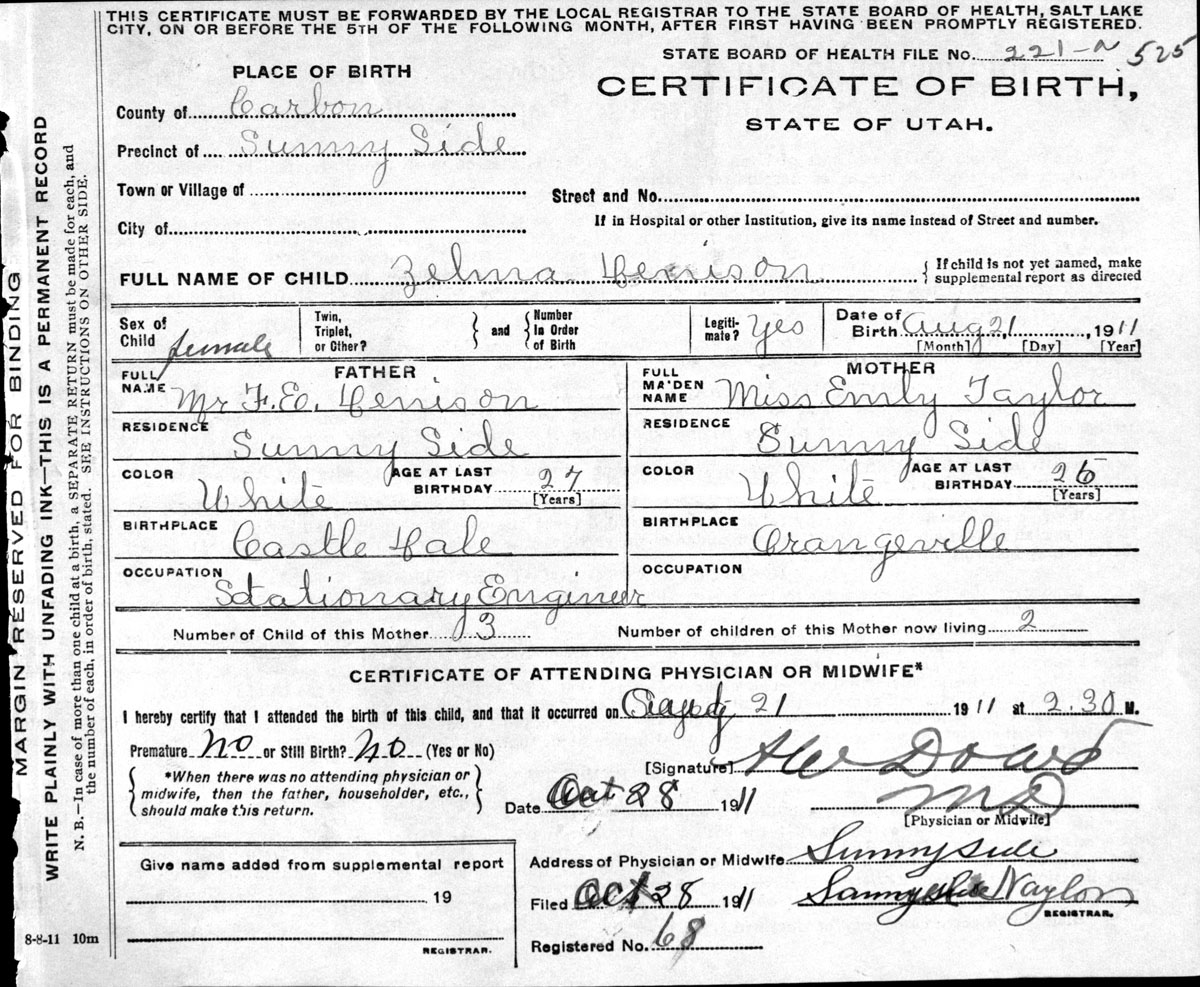 THIS CERTIFICATE MUST BE FORWARDED BY THE LOCAL REGISTRAR TO THE STATE BOARD OF HEALTH, SALT LAKE
CITY, ON OR BEFORE THE 5TH OF THE FOLLOWING MONTH, AFTER FIRST HAVING BEEN PROMPTLY REGISTERED.
STATE BOARD OF HEALTH FILE No. 221-a 525
PLACE OF BIRTH
CERTIFICATE OF BIRTH,
STATE OF UTAH.
County of Carbon
Precinct of Sunny Side
Town or Village of
Street and No.
City of
If in Hospital or other Institution, give its name instead of Street and number.
FULL NAME OF CHILD Zelma Henison
{ If child is not yet named, make
supplemental report as directed
Sex of Child female
Twin, Triplet, or Other? } and { Number In Order of Birth
Legiti-mate? Yes
Date of Birth Aug 21, 1911
[Month] [Day] [Year]
FATHER
FULL NAME Mr F.E. Henison
RESIDENCE Sunny Side
COLOR White
AGE AT LAST BIRTHDAY 27
[Years]
BIRTHPLACE Castle Dale
OCCUPATION Stationary Engineer
MOTHER
FULL MA'DEN NAME Miss Emily Taylor
RESIDENCE Sunny Side
COLOR White
AGE AT LAST BIRTHDAY 26
[Years]
BIRTHPLACE Orangeville
OCCUPATION
Number of Child of this Mother 3
Number of children of this Mother now living 2
CERTIFICATE OF ATTENDING PHYSICIAN OR MIDWIFE*
I hereby certify that I attended the birth of this child, and that it occurred on 21 1911 at 2.30 M.
Premature No or Still Birth? No (Yes or No)
{ *When there was no attending physician or
midwife, then the father, householder, etc.,
should make this return. }
[Signature] Dowd
M D
[Physician or Midwife]
Date Oct 28 1911
Give name added from supplemental report
19
REGISTRAR.
Address of Physician or Midwife Sunnyside
Filed Oct 28 1911 Naylor
REGISTRAR.
Registered No. 68
8-8-11 10m
MARGIN RESERVED FOR BINDING
WRITE PLAINLY WITH UNFADING INK—THIS IS A PERMANENT RECORD
N. B.—In case of more than one child at a birth, a SEPARATE RETURN must be made for each, and
the number of each, in order of birth, stated. SEE INSTRUCTIONS ON OTHER SIDE.